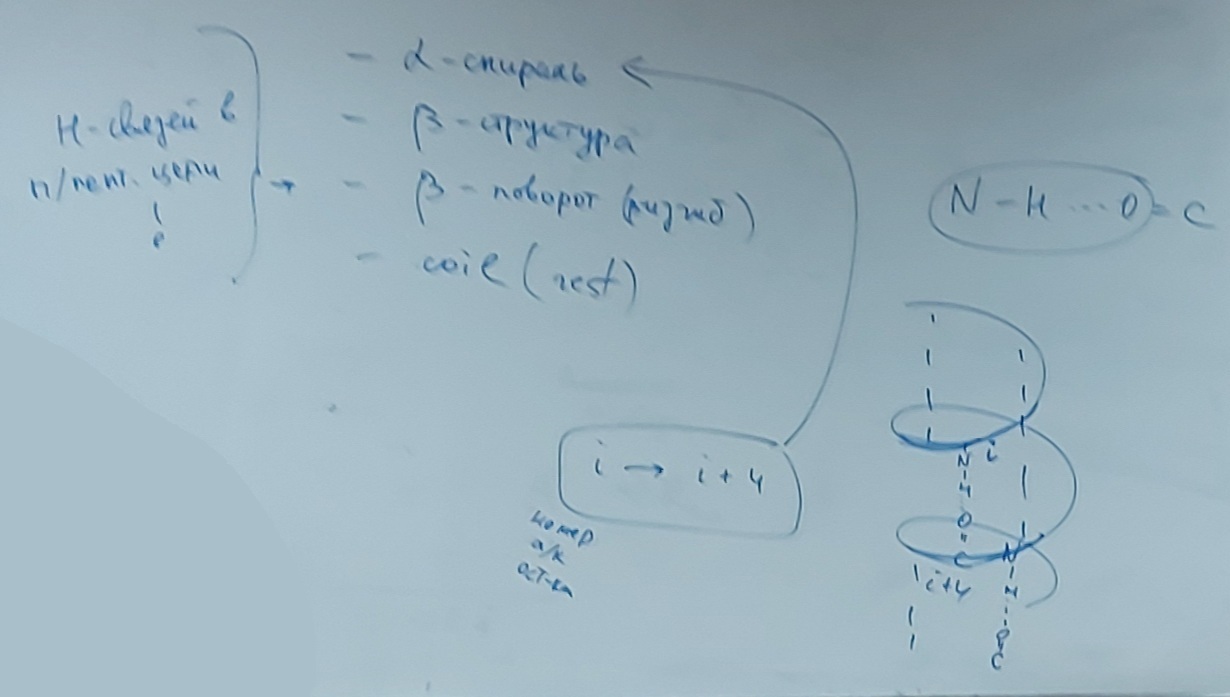 H-связей в
п/пепт. цепи
- α-спираль
- β-структура
- β-поворот (изгиб)
- coil (rest)
N-H...O=C
i → i+4
номер
а/к
ост-ка
N i
H
O
C
i+4
N
H
O
C